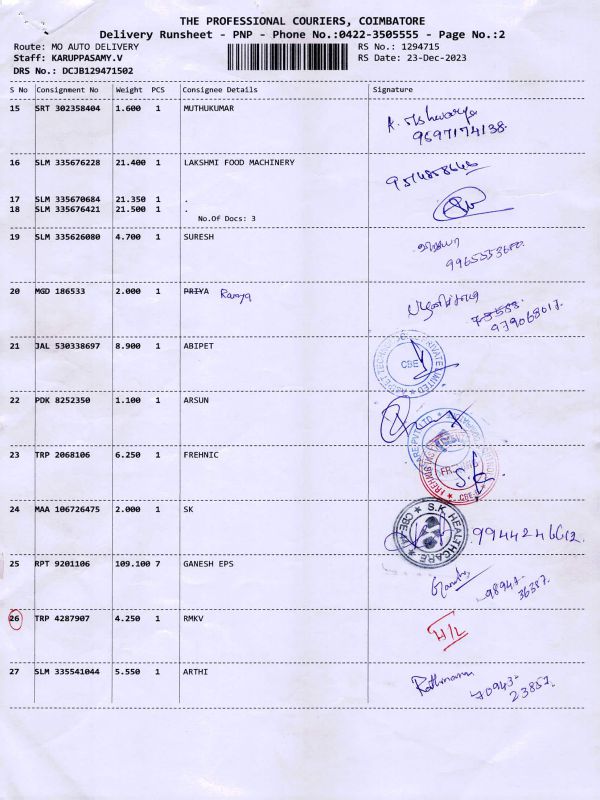 THE PROFESSIONAL COURIERS, COIMBATORE
Delivery Runsheet - PNP - Phone No.:0422-3505555 - Page No.:2
Route: MO AUTO DELIVERY RS No.: 1294715
Staff: KARUPPASAMY.V RS Date: 23-Dec-2023
DRS No.: DCJB129471502
S No Consignment No Weight PCS Consignee Details Signature
15 SRT 302358404 1.600 1 MUTHUKUMAR
9597174138.
16 SLM 335676228 21.400 1 LAKSHMI FOOD MACHINERY
17 SLM 335670684 21.350 1 .
18 SLM 335676421 21.500 1 .
No.Of Docs: 3
19 SLM 335626080 4.700 1 SURESH
20 MGD 186533 2.000 1 PRIYA Ramya
21 JAL 530338697 8.900 1 ABIPET
CBE
22 PDK 8252350 1.100 1 ARSUN
23 TRP 2068106 6.250 1 FREHNIC
24 MAA 106726475 2.000 1 SK
S.K. HEALTHCARE
CBE
9944246612
25 RPT 9201106 109.100 7 GANESH EPS
98947
36387.
26 TRP 4287907 4.250 1 RMKV
H/L
27 SLM 335541044 5.550 1 ARTHI
70943
23857.